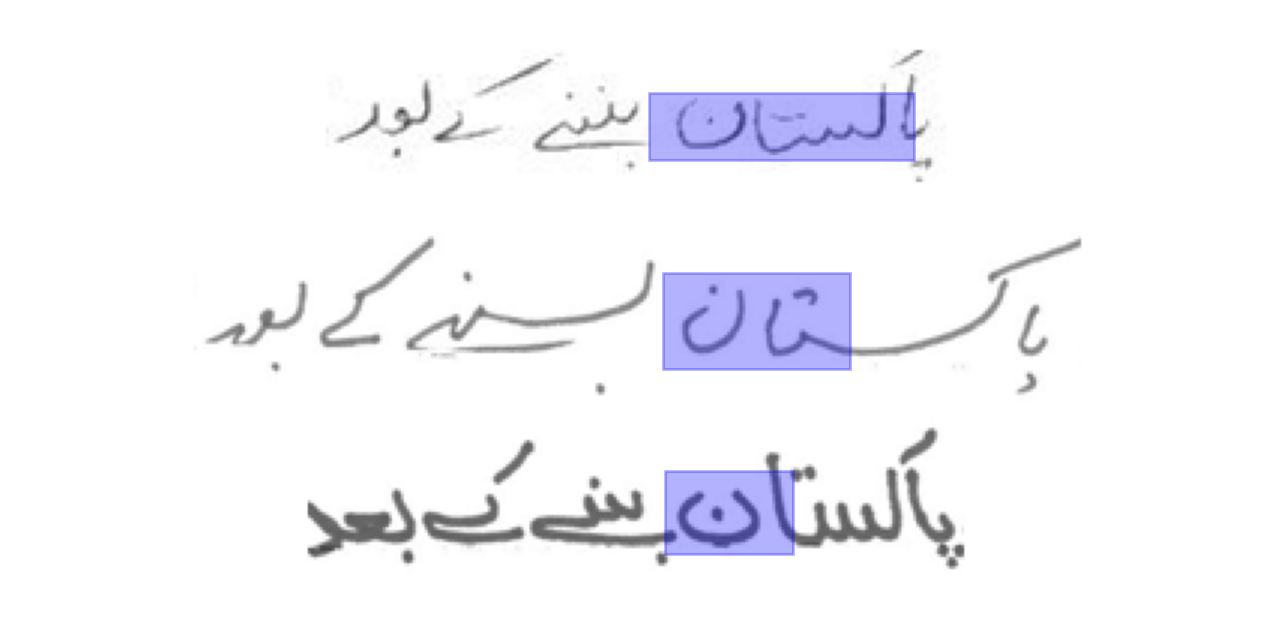 پاکستان بننے کے بعد
پاکستان بننے کے بعد
پاکستان بننے کے بعد